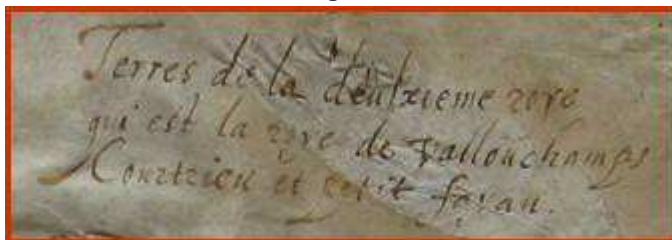 Terres de la deulxieme roye
qui est la roye de vallouchamps
Courtrieu et petit foyau.